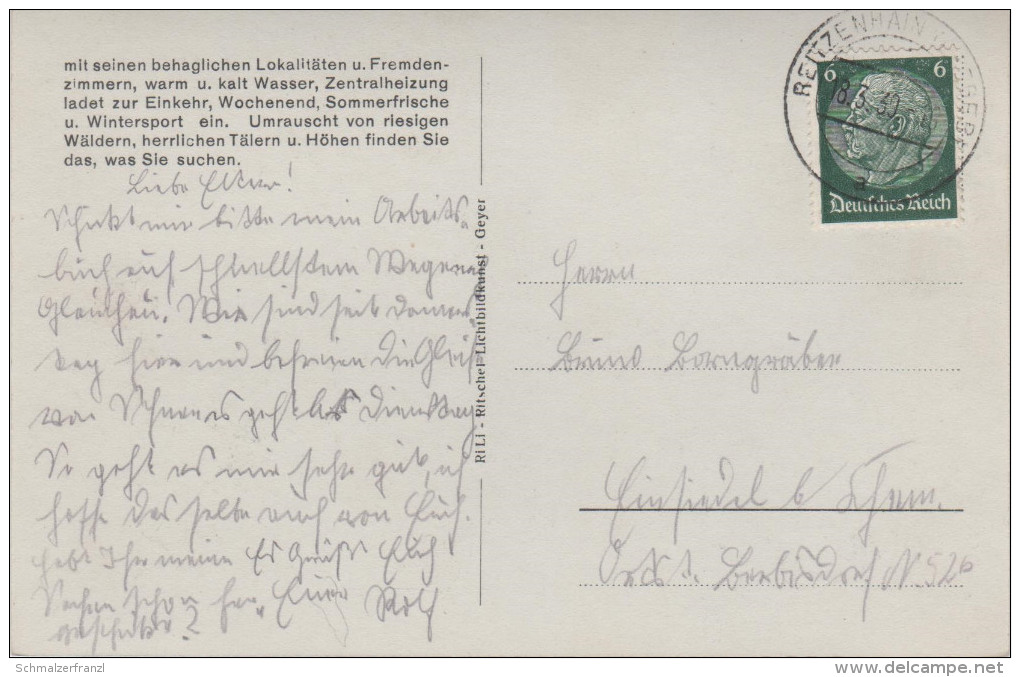 mit seinen behaglichen Lokalitäten u. Fremden-
zimmern, warm u. kalt Wasser, Zentralheizung
ladet zur Einkehr, Wochenend, Sommerfrische
u. Wintersport ein. Umrauscht von riesigen
Wäldern, herrlichen Tälern u. Höhen finden Sie
das, was Sie suchen.
Liebe Eltern!
Schickt mir bitte mein Arbeits-
buch auf schnellstem Wege
Wir sind seit Donners
tag hier und befreien die Gleise
von Schnee es geht bis Dienstag
So geht es mir sehr gut, ich
hoffe das selbe auch von Euch.
habt Ihr meine Es Grüßt Euch
Sachen schon Euer Rolf
geschickt?
RiLi - Ritschel-Lichtbildkunst - Geyer
REITZENHAIN
18.3.
6 6
Deutsches Reich
Herrn
Bruno Borngräber
Einsiedel b Chem.
Berbisdorf N. 52b
Schmalzerfranzl
www.delcampe.net